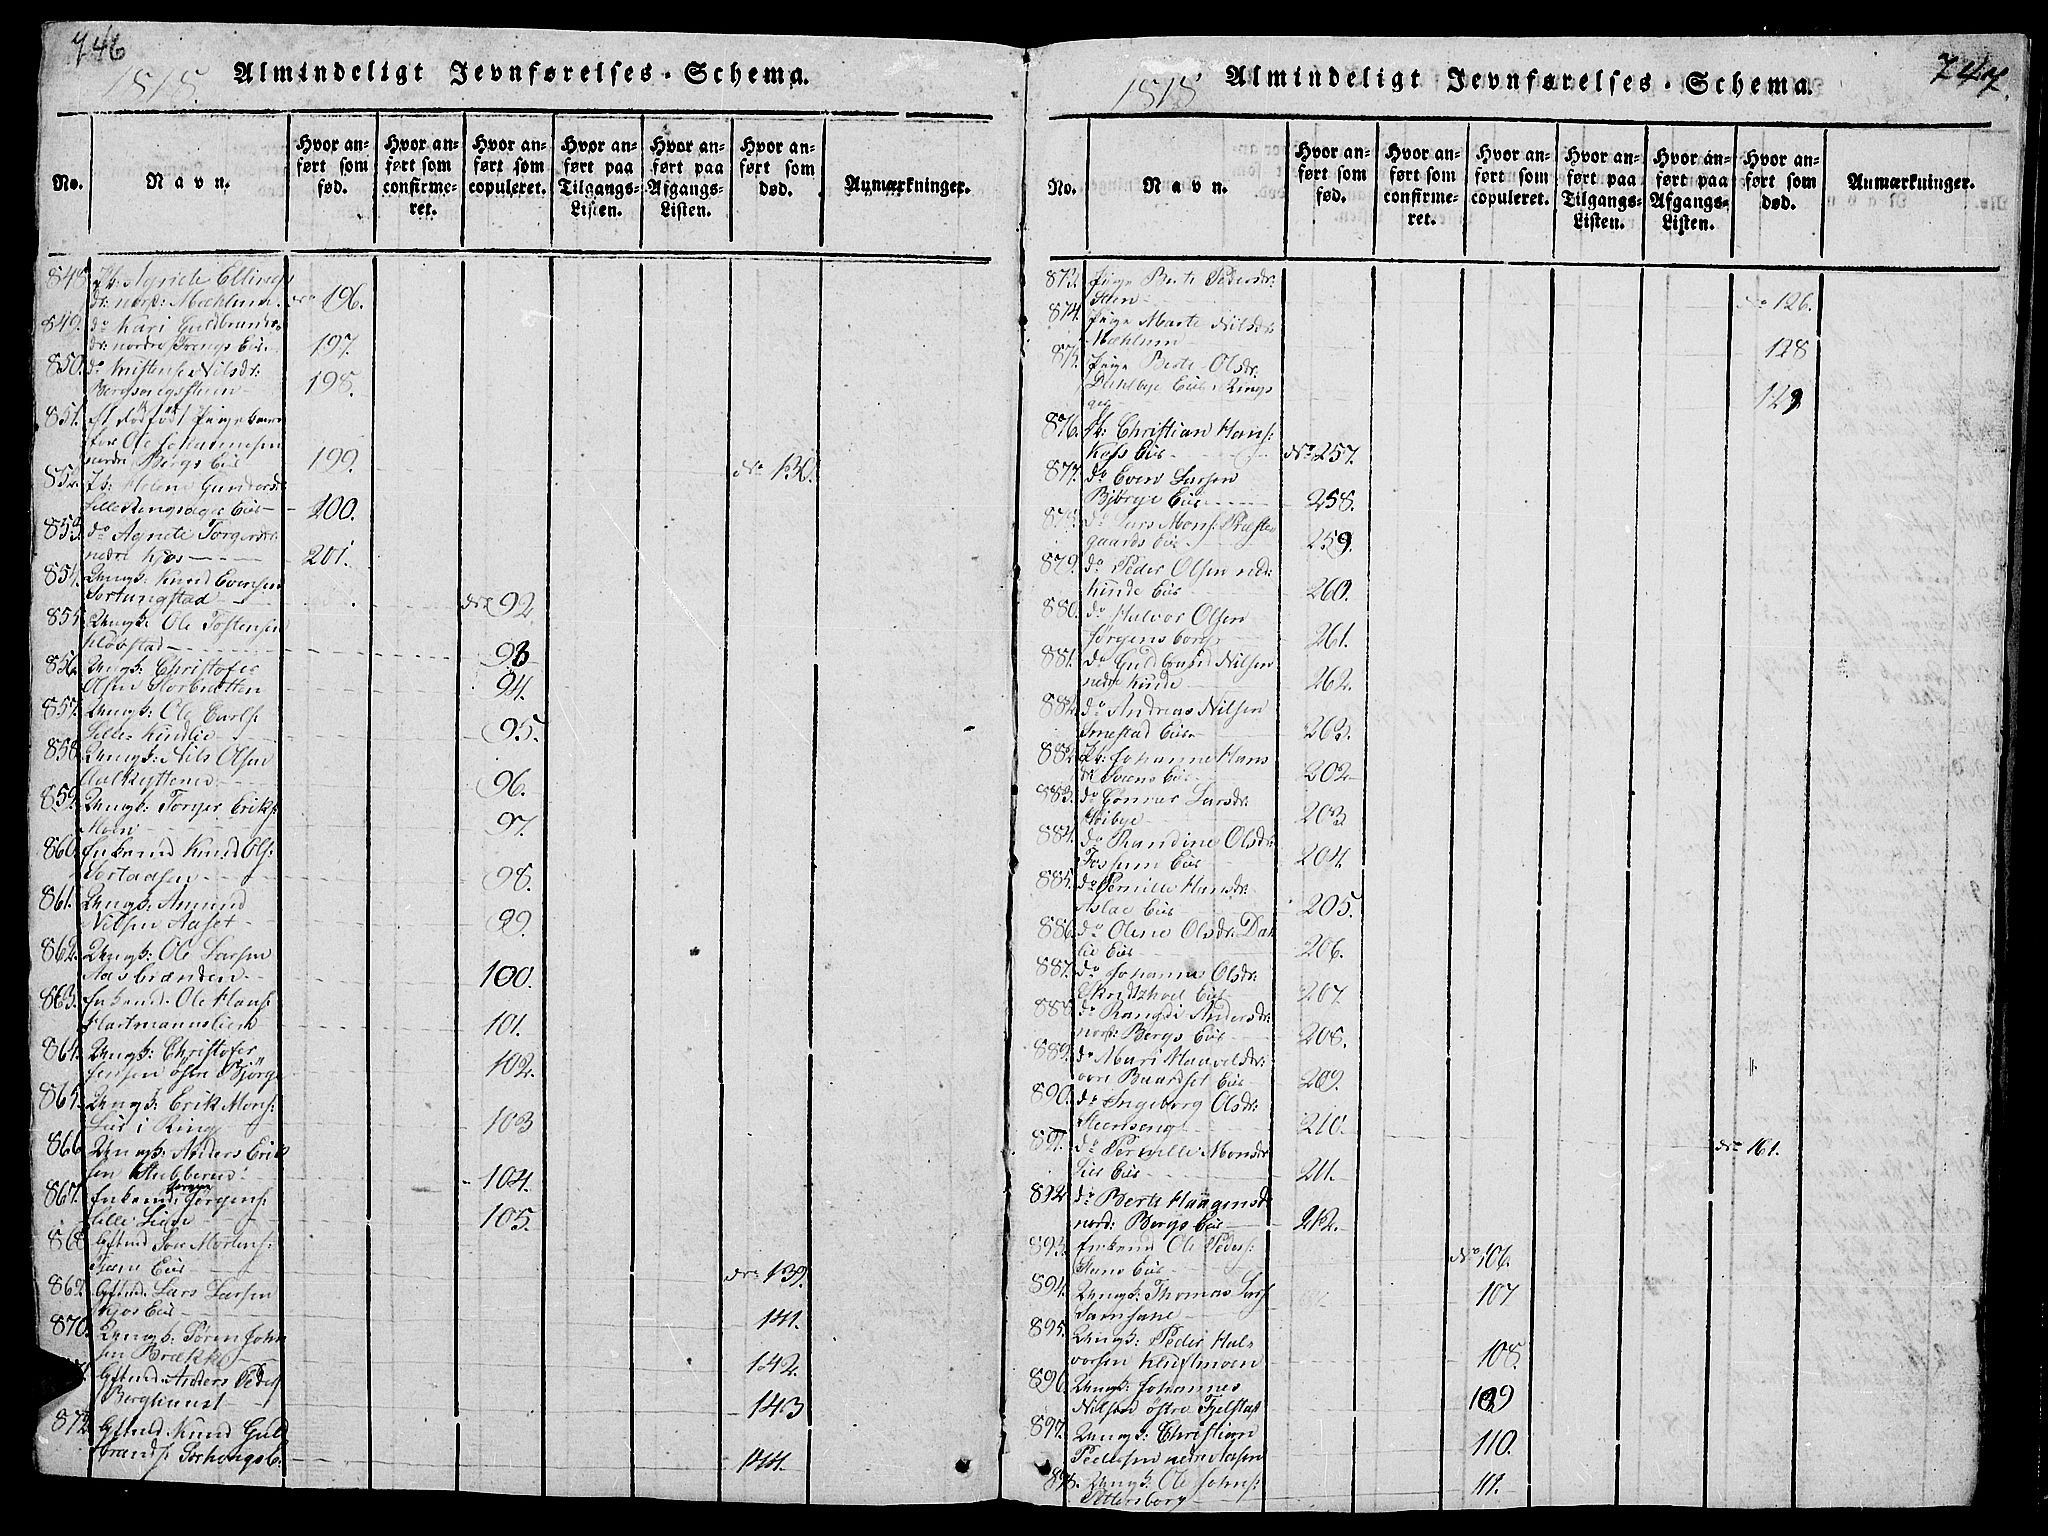 746
1818. Almindeligt Jevnførelses-Schema.
No.
Navn.
Hvor anført som fød.
Hvor anført som confirmeret.
Hvor anført som copuleret.
Hvor anført paa Tilgangs-Listen.
Hvor anført paa Afgangs-Listen.
Hvor anført som død.
Anmærkninger.
848. Pb: Agnete Ellings
dr: nord: Mæhlum. No 196.
849. do Kari Guldbrands
dr: nordre Eie 197.
850. do Nilsdr: 198.
851. Et dødfødt Pige barn
for Ole Johannesen
nedre Bergs Eie 199. No 130.
852. Pb: Helene Gunders
Lille Eie 200.
853. do Agnete Torgersdr:
nedre Kjos 201.
854. Ungk: Knud Evensen
No 92.
855. Ungk: Ole Tostensen
Kløvstad 93
856. Ungk: Christofer
Olsen Storbraatten 94.
857. Ungk: Ole Carls:
Lille Kindlie 95.
858. Ungk: Nils Olsen
96.
859. Ungk: Torger Eriks:
Moen 97.
860. Enkemd Knud Ols:
98.
861. Ungk: Amund
Nilsen Aaset 99.
862. Ungk: Ole Larsen
Aasbrænden 100.
863. Enkemd: Ole Hans:
Hartmannslien 101.
864. Ungk: Christofer
Jensen østre Bjørge 102.
865. Ungk: Erik Mons:
Lie i Ring 103
866 Ungk: Anders Erik
sen Stubberud 104.
867. Enkemd: Jørgens:
Lille Lien 105.
868 Gftmd Mortens:
Eie No 139.
869. Gftmd: Lars Larsen
Kjos Eie 141.
870. Ungk: Søren John
sen Brække 142.
Gftmd: Anders Peders:
143
872 Gftmd: Knud Guld
brands: 144.
747.
1818 Almindeligt Jevnførelses-Schema.
No.
Navn.
Hvor anført som fød.
Hvor anført som confirmeret.
Hvor anført som copuleret.
Hvor anført paa Tilgangs-Listen.
Hvor anført paa Afgangs-Listen.
Hvor anført som død.
Anmærkninger.
873. Pige Berte Pedersdr:
Steen No 126.
874. Pige Marte Nilsdr:
Mæhlum 128
875. Pige Berte Olsdr:
Eie Rings
129
876. Pb: Christian Hans:
Eie No 257.
877. do Even Larsen
Bjørge Eie 258.
878. do Lars Mons: Præste
gaards Eie 259.
879. do Peder Olsen ned:
Kinde Eie 260.
880. do Halvor Olsen
Jørgensborg 261.
881. do Guldbrand Nilsen
nedre Kinde 262.
882. do Andreas Nilsen
Eie 263.
882 Pb: Johanne Hans
dr Eie 202
883. do Larsdr:
203
884. do Randine Olsdr:
Fossum Eie 204.
885. do Pernille Hansdr:
Eie 205.
886. do Oline Olsdr: Dah
lie Eie 206.
887. do Johanne Olsdr:
Eie 207.
888. do Rangdi Andersdr:
nord: Bergs Eie 208.
889. do Mari Haavelsdr:
Baardset Eie 209.
890. do Ingeborg Olsdr:
Steensengs 210.
891. do Pernille Monsdr
Lies Eie 211. No 161.
892 do Berte Haagensd
nord: Bergs Eie 212.
893. Enkemd Ole Peders:
Eie No 106.
894. Ungk: Thomas Lars
107
895. Ungk: Peder Hal
vorsen Kløftmoen 108.
896. Ungk: Johannes
Nilsen østre Fjelstad 109
897. Ungk: Christian
Pedersen nedre Aasen 110.
898. Ungk: Ole Johns:
Pettersborg 111.